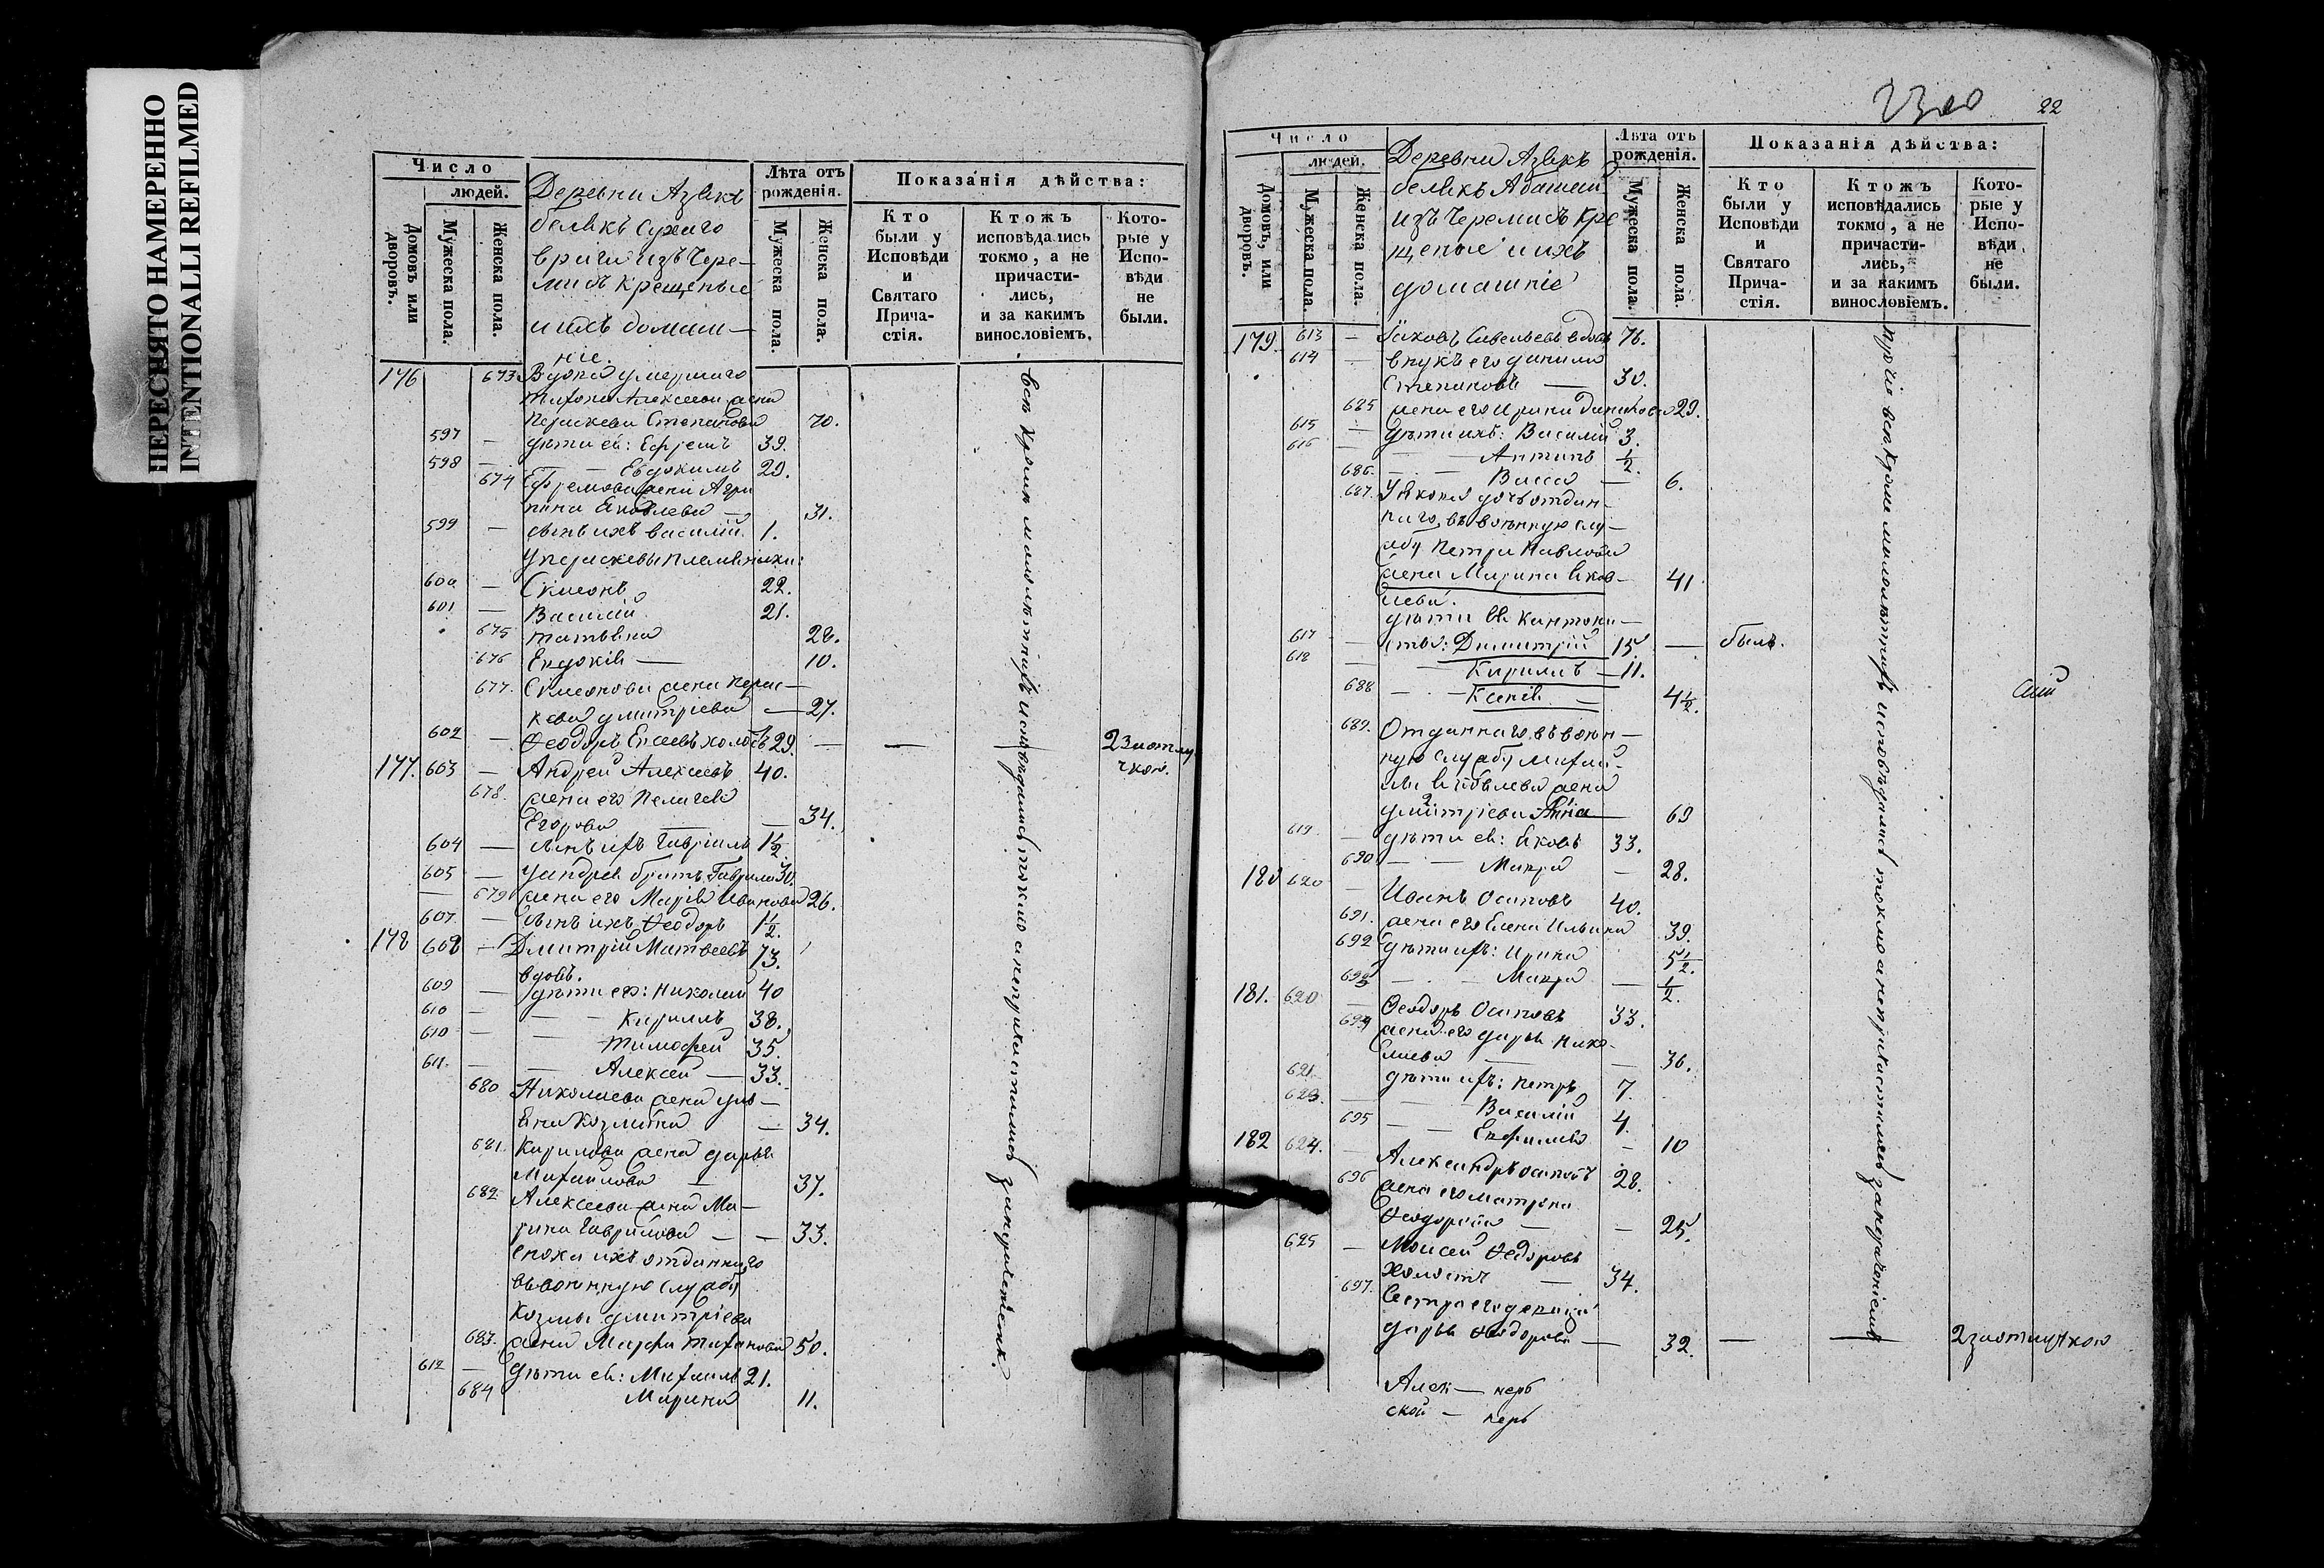 ПЕРЕСНЯТО НАМЕРЕННО
INTENTIONALLI REFILMED
Число
людей.
Домовъ или дворовъ.
Мужеска пола.
Женска пола.
Деревни Азъякъ
белякъ Сухаго
врага изъ Чере-
мисъ крещеные
и ихъ домаш-
ніе.
Лѣта отъ рожденія.
Мужеска пола.
Женска пола.
Показанія дѣйства:
Кто были у Исповѣди и Святаго Прича-стія.
Ктожъ исповѣдались токмо, а не причасти-лись, и за какимъ винословіемъ.
Кото-рые у Испо-вѣди не были.
176 673 Вдова умершаго
Алексеева жена
Параскева Степанова 70.
597 — дѣти ей: Ефремъ 39.
598 — — Евдокимъ 29.
674 Ефремова жена Агри
пина Яковлева — 31.
599 — сынъ ихъ Василій 1.
У Параскевы племянники:
600 — Симеонъ 22.
601 — Василій 21.
675 Татьяна 28.
676 Евдокія — 10.
677. Симеонова жена Парас—
кева Дмитріева — 27.
602 — Ѳеодоръ холостъ 29. — — 2 за отлу
чкою.
177. 603 — Андрей Алексеевъ 40.
678. жена его Пелагея
Егорова — 34.
604 — сынъ ихъ Гавріилъ 1 1/2
605 — У Андрея братъ Гаврила 30.
— 679 жена его Марія Иванова 26.
607 — Сынъ ихъ Ѳеодоръ 1 1/2.
178 608 — Дмитрій Матвеевъ 73.
вдовъ.
609 — дѣти его: Николай 40
610 — — Кирилъ 38.
610 — — Тимофей 35.
611. — — Алексей — 33.
680 Николаева жена Уль—
яна Козмина — 34.
681. Кирилова жена Дарья
Михайлова — 37.
682. Алексеева жена Ма—
рина Гаврилова — — 33.
Сноха ихъ отданнаго
въ военную службу
Козмы Дмитріева
683. жена Марфа 50.
612 — дѣти ея: Михаилъ 21.
684 Марина 11.
Всѣ кроме малолѣтнихъ исповѣдались токмо а не причастились за нераченіемъ.
22
Число
людей.
Домовъ, или дворовъ.
Мужеска пола.
Женска пола.
Деревни Азъякъ
белякъ Абашей
изъ Черемисъ кре
щеные и ихъ
домашніе
Лѣта отъ рожденія.
Мужеска пола.
Женска пола.
Показанія дѣйства:
Кто были у Исповѣди и Святаго Прича-стія.
Ктожъ исповѣдались токмо, а не причасти-лись, и за какимъ винословіемъ.
Кото-рые у Испо-вѣди не были.
179. 613 — Іаковъ Савельевъ вдовъ 76.
614 — внукъ его Данила
Степановъ — 30.
685 жена его Ирина Данилова 29.
615 — дѣти ихъ: Василій 3.
616 — — Антипъ 1/2.
686. — — Васса — 6.
687. У Якова дочь отдан-
наго въ военную слу—
жбу Петра Павлова
жена Марина Яков— 41
лева.
дѣти ея кантони—
617 — сты: Димитрій 15. — былъ.
618 — — Кирилъ — 11.
688 — — Ксенія — 4 1/2.
689. Отданнаго въ воен—
ную службу Михай-
ла Яковлева жена
Дмитріева Анна 69
619. — дѣти ея: Яковъ 33.
690 — — Мавра — 28.
180 620 — Иванъ Осиповъ 40.
691. жена его Елена Ильина 39.
692 дѣти ихъ: Ирина 5 1/2.
693 — — Мавра — 1/2.
181. 620 — Ѳеодоръ Осиповъ 33.
694 жена его Дарья Нико-
лаева — — 36.
621. дѣти ихъ: Петръ 7.
623. — — Василій 4
695 — — Евфимія — 10
182 624. — Александръ Осиповъ 28.
696 жена его Матрона
Ѳеодорова — — 25.
625 — Моисей Ѳедоровъ
холостъ — 34.
697. Сестра его девица
Дарья Ѳеодорова — 32. — — 2 за отлучкою
прочіе всѣ кроме малолѣтнихъ исповѣдались токмо а не причастились за нераченіемъ